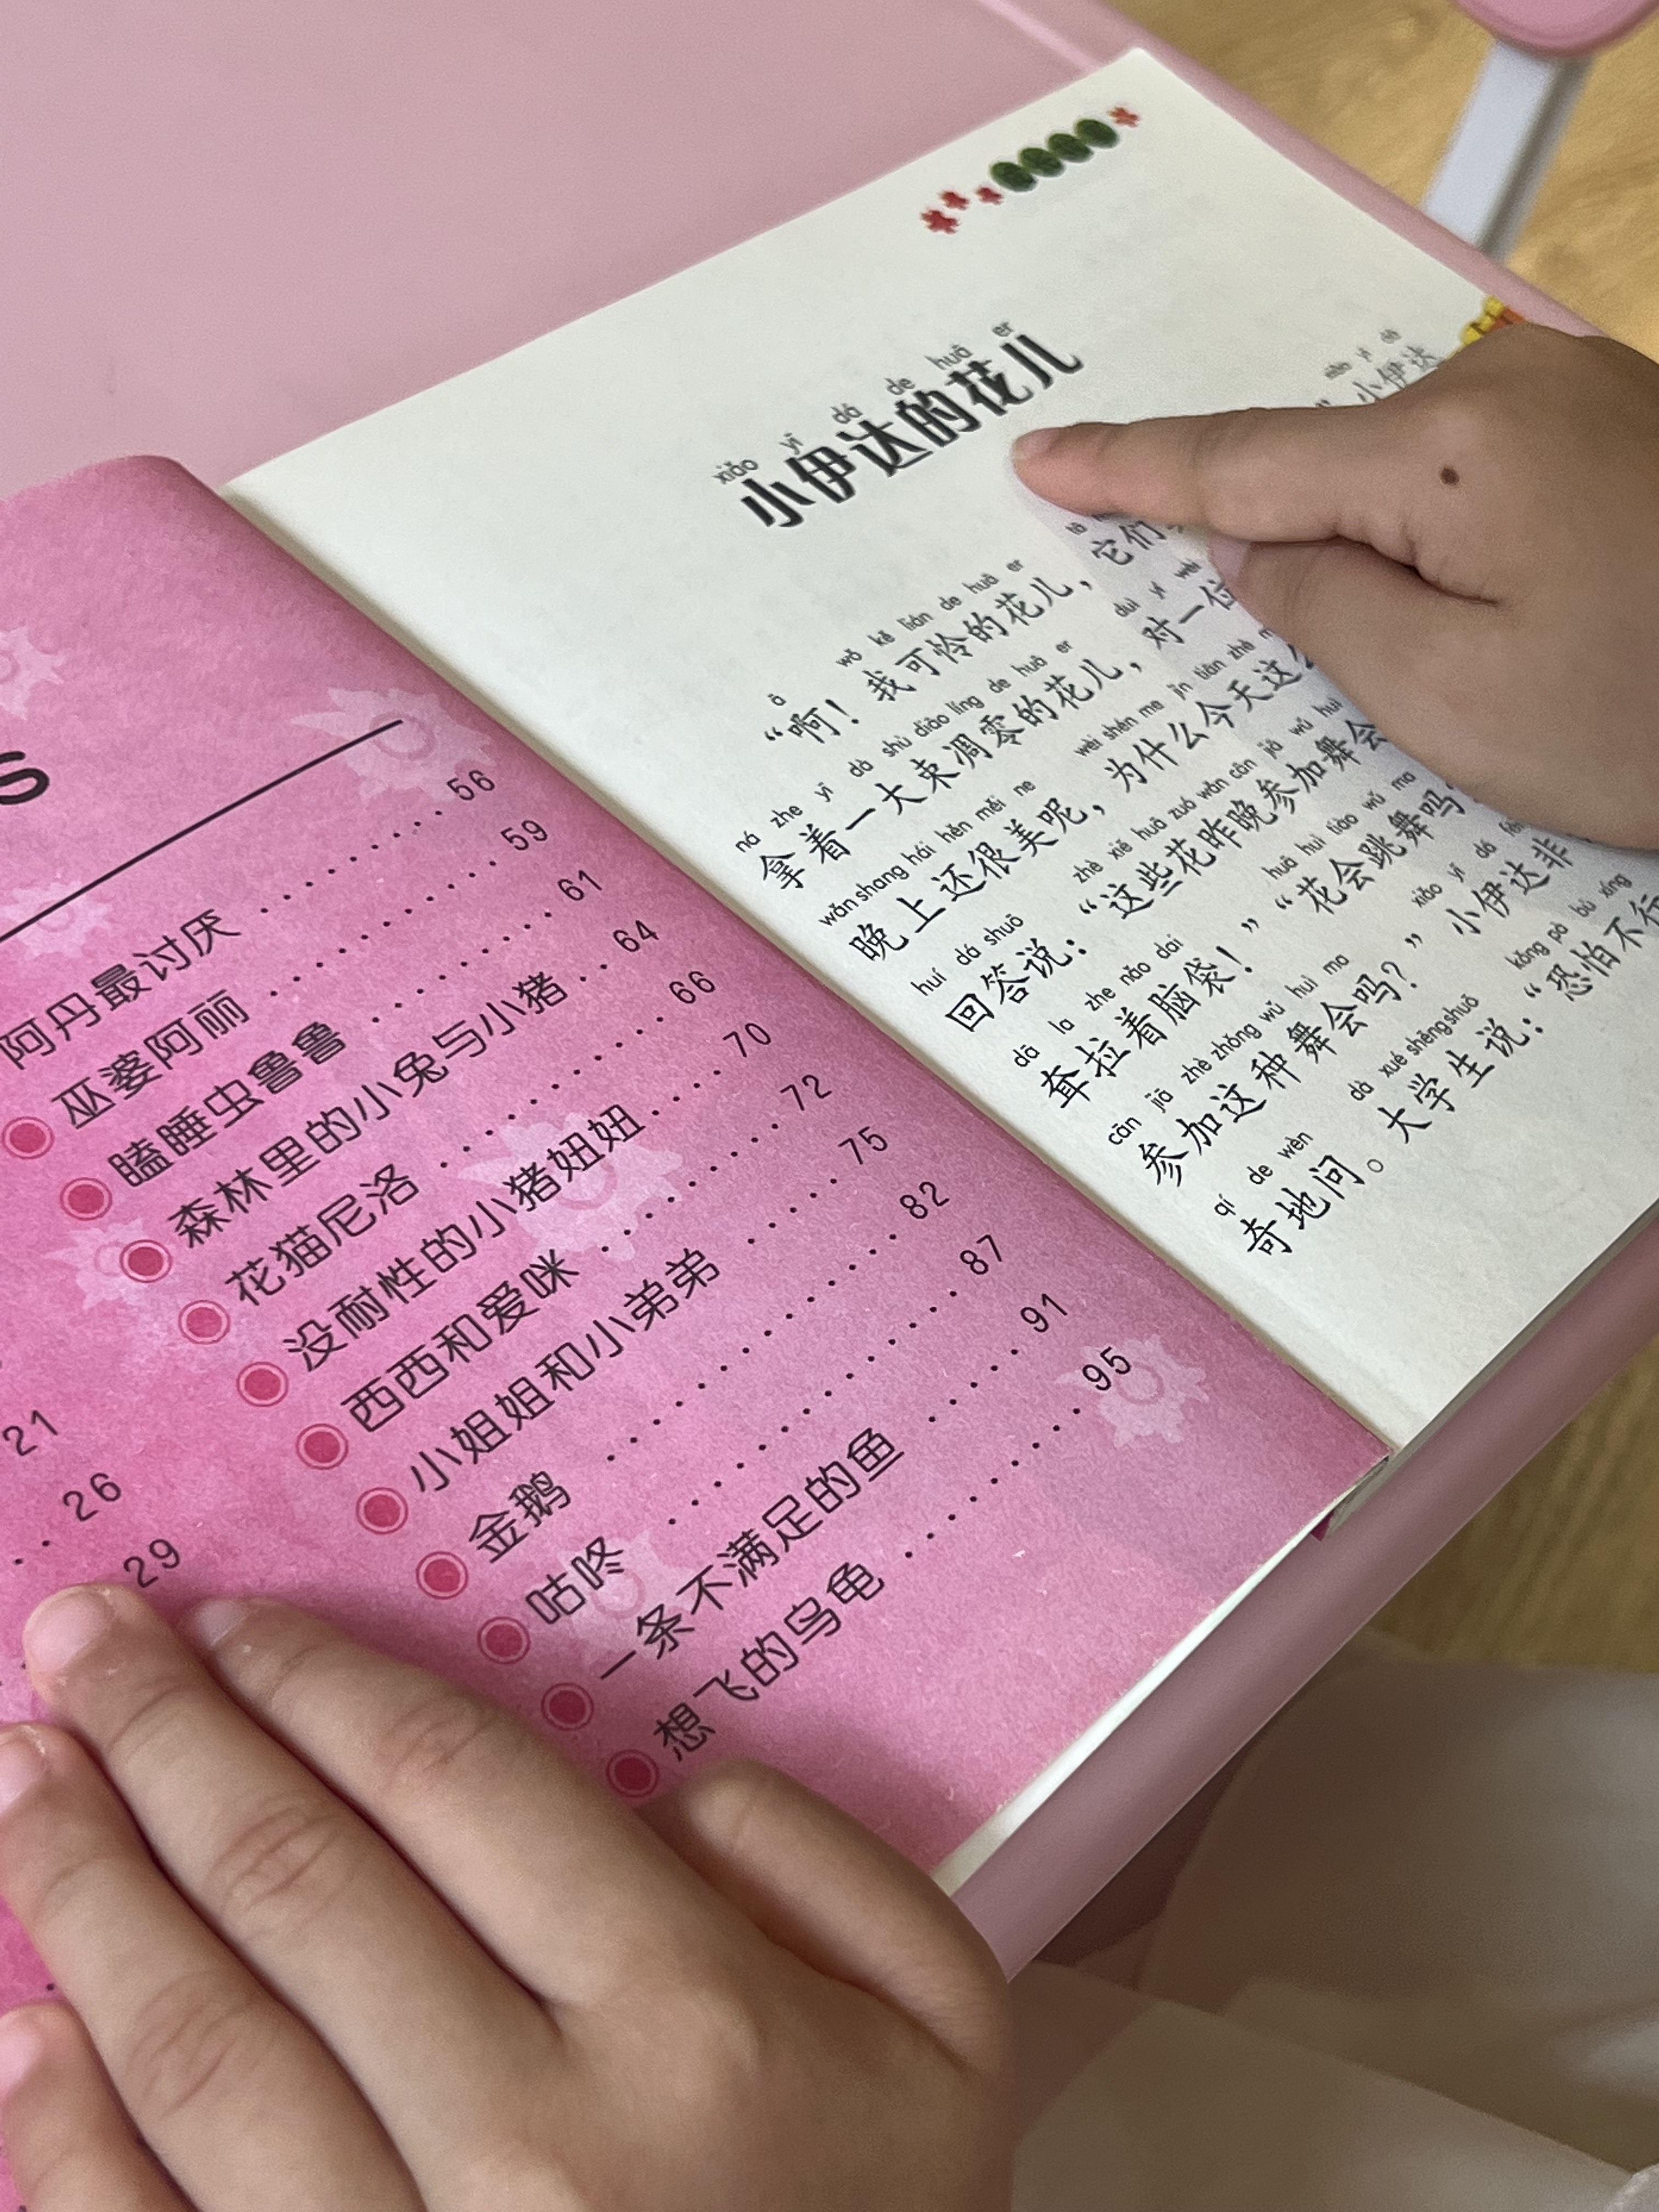 S
阿丹最讨厌 ············ 56
巫婆阿丽 ············ 59
瞌睡虫鲁鲁 ············ 61
森林里的小兔与小猪 ·· 64
花猫尼洛 ············ 66
没耐性的小猪妞妞 ····· 70
西西和爱咪 ············ 72
小姐姐和小弟弟 ······ 75
金鹅 ············ 82
咕咚 ············ 87
一条不满足的鱼 ······ 91
想飞的乌龟 ············ 95
21
26
29
xiǎo yī dá de huā er
小伊达的花儿
xiǎo yī dá
小伊达
ā wǒ kě lián de huā er
“啊！我可怜的花儿，它们
ná zhe yí dà shù diāo líng de huā er duì yí wèi
拿着一大束凋零的花儿，对一位
wǎn shang hái hěn měi ne wèi shén me jīn tiān zhè
晚上还很美呢，为什么今天这么
huí dá shuō zhè xiē huā zuó wǎn cān jiā wǔ huì
回答说：“这些花昨晚参加舞会
dā la zhe nǎo dai huā huì tiào wǔ ma
耷拉着脑袋！”“花会跳舞吗？
cān jiā zhè zhǒng wǔ huì ma xiǎo yī dá fēi
参加这种舞会吗？”小伊达非
qí de wèn dà xué shēng shuō kǒng pà bù xíng
奇地问。大学生说：“恐怕不行